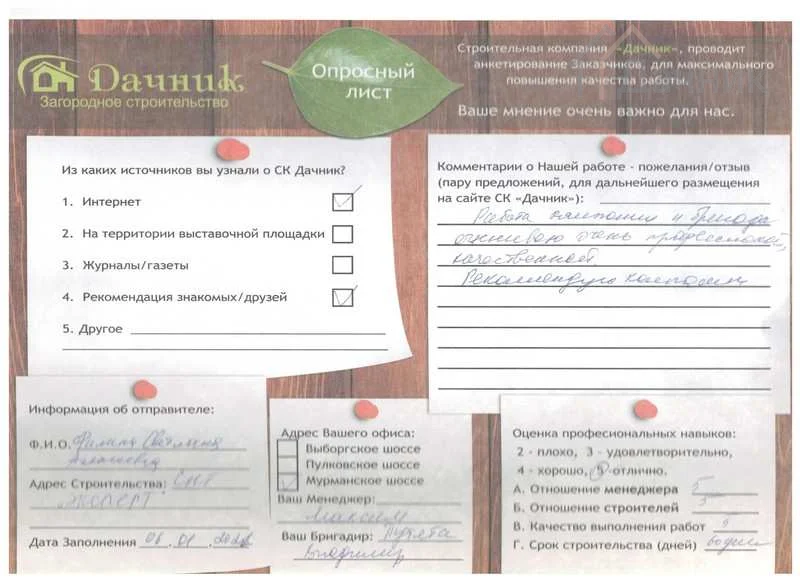 Дачник
Загородное строительство
Опросный
лист
Строительная компания «Дачник», проводит
анкетирование Заказчиков, для максимального
повышения качества работы.
Ваше мнение очень важно для нас.
Из каких источников вы узнали о СК Дачник?
1. Интернет
2. На территории выставочной площадки
3. Журналы/газеты
4. Рекомендация знакомых/друзей
5. Другое
Комментарии о Нашей работе - пожелания/отзыв
(пару предложений, для дальнейшего размещения
на сайте СК «Дачник»):
Работа компании и бригады
оцениваю очень
качественной
Рекомендую компанию
Информация об отправителе:
Ф.И.О. Светлана
Адрес Строительства: СНТ
Эксперт
Дата Заполнения 06 01
Адрес Вашего офиса:
Выборгское шоссе
Пулковское шоссе
Мурманское шоссе
Ваш Менеджер:
Максим
Ваш Бригадир:
Владимир
Оценка профессиональных навыков:
2 - плохо, 3 - удовлетворительно,
4 - хорошо, 5 -отлично.
А. Отношение менеджера 5
Б. Отношение строителей 5
В. Качество выполнения работ 5
Г. Срок строительства (дней)